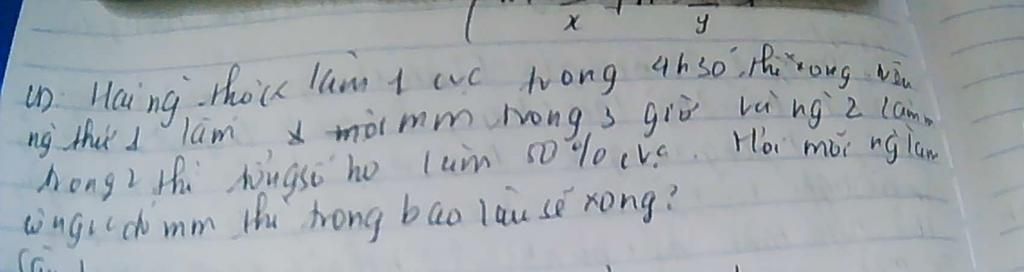 x y
Hai ng thợ làm 1 cvc trong 4h30 thì xong nếu
ng thứ 1 làm mm trong 3 giờ và ng 2 làm
trong 2 thì tổng số họ làm 50% cvc. Hỏi mỗi ng làm
mm thì trong bao lâu sẽ xong?